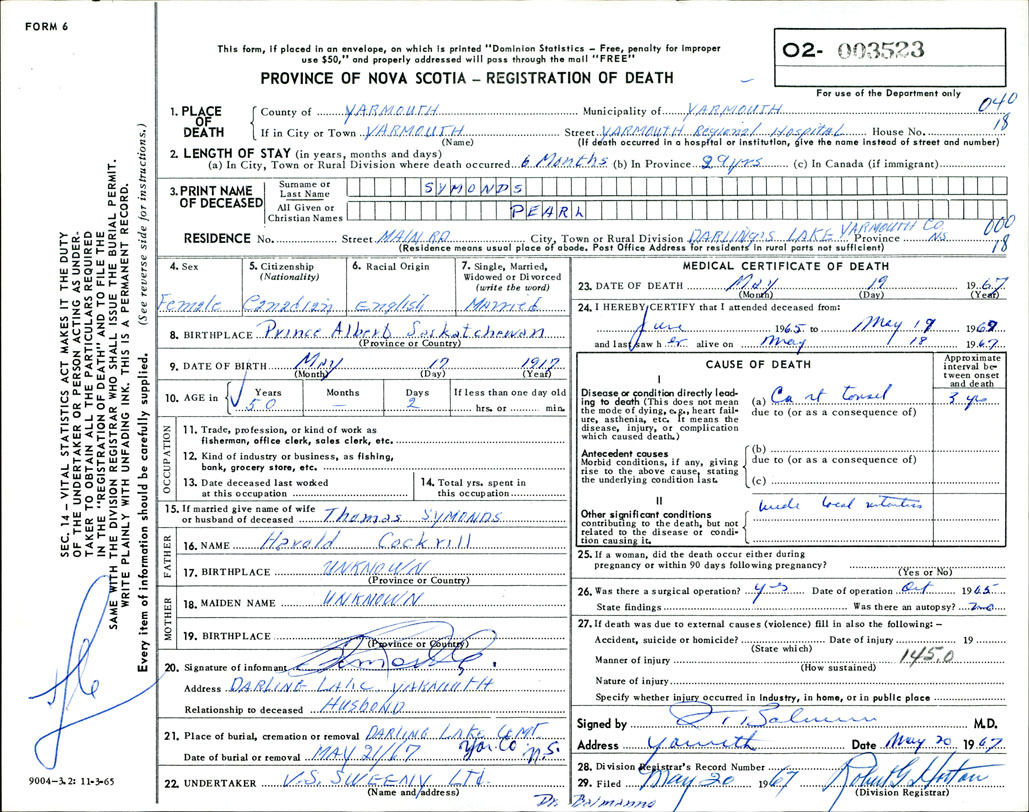 FORM 6
This form, if placed in an envelope, on which is printed "Dominion Statistics – Free, penalty for improper
use $50," and properly addressed will pass through the mail "FREE"
PROVINCE OF NOVA SCOTIA – REGISTRATION OF DEATH
02- 003523
For use of the Department only
040
18
1. PLACE OF DEATH
County of YARMOUTH Municipality of YARMOUTH
If in City or Town YARMOUTH Street YARMOUTH Regional Hospital House No.
(Name) (If death occurred in a hospital or institution, give the name instead of street and number)
2. LENGTH OF STAY (in years, months and days)
(a) In City, Town or Rural Division where death occurred 6 Months (b) In Province 29 yrs (c) In Canada (if immigrant)
3. PRINT NAME OF DECEASED
Surname or Last Name SYMONDS
All Given or Christian Names PEARL
RESIDENCE No. Street MAIN RD City, Town or Rural Division DARLING'S LAKE YARMOUTH CO. Province N.S.
(Residence means usual place of abode. Post Office Address for residents in rural parts not sufficient)
000
18
4. Sex Female
5. Citizenship (Nationality) Canadian
6. Racial Origin English
7. Single, Married, Widowed or Divorced (write the word) Married
8. BIRTHPLACE Prince Albert Saskatchewan
(Province or Country)
9. DATE OF BIRTH May 17 1917
(Month) (Day) (Year)
10. AGE in Years 50 Months – Days 2 If less than one day old hrs. or min.
OCCUPATION
11. Trade, profession, or kind of work as
fisherman, office clerk, sales clerk, etc.
12. Kind of industry or business, as fishing,
bank, grocery store, etc.
13. Date deceased last worked
at this occupation
14. Total yrs. spent in
this occupation
15. If married give name of wife
or husband of deceased Thomas SYMONDS
FATHER
16. NAME Harold Cockrill
17. BIRTHPLACE UNKNOWN
(Province or Country)
MOTHER
18. MAIDEN NAME UNKNOWN
19. BIRTHPLACE
(Province or Country)
20. Signature of informant
Address DARLING LAKE YARMOUTH
Relationship to deceased HUSBAND
21. Place of burial, cremation or removal DARLING LAKE CEMT
Yar. Co N.S.
Date of burial or removal MAY 21/67
22. UNDERTAKER V.S. SWEENY LTD.
(Name and address)
MEDICAL CERTIFICATE OF DEATH
23. DATE OF DEATH May 19 1967
(Month) (Day) (Year)
24. I HEREBY CERTIFY that I attended deceased from:
June 1965 to May 19 1967
and last saw her alive on May 18 1967
CAUSE OF DEATH
Approximate interval between onset and death
I
Disease or condition directly leading to death (This does not mean
the mode of dying, e.g., heart failure, asthenia, etc. It means the
disease, injury, or complication
which caused death.)
(a) Ca rt tonsil 3 yrs
due to (or as a consequence of)
Antecedent causes
Morbid conditions, if any, giving
rise to the above cause, stating
the underlying condition last.
(b)
due to (or as a consequence of)
(c)
II
Other significant conditions
contributing to the death, but not
related to the disease or condition causing it.
local
25. If a woman, did the death occur either during
pregnancy or within 90 days following pregnancy?
(Yes or No)
26. Was there a surgical operation? yes Date of operation Oct 1965
State findings Was there an autopsy? no
27. If death was due to external causes (violence) fill in also the following: –
Accident, suicide or homicide? Date of injury 19
(State which)
Manner of injury 145.0
(How sustained)
Nature of injury
Specify whether injury occurred in Industry, in home, or in public place
Signed by M.D.
Address Yarmouth Date May 20 1967
28. Division Registrar's Record Number
29. Filed May 20 1967 Robert G. Horton
(Division Registrar)
Dr. Balmanno
SEC. 14 – VITAL STATISTICS ACT MAKES IT THE DUTY
OF THE UNDERTAKER OR PERSON ACTING AS UNDER-
TAKER TO OBTAIN ALL THE PARTICULARS REQUIRED
IN THE "REGISTRATION OF DEATH" AND TO FILE THE
SAME WITH THE DIVISION REGISTRAR WHO SHALL ISSUE THE BURIAL PERMIT.
WRITE PLAINLY WITH UNFADING INK. THIS IS A PERMANENT RECORD.
Every item of information should be carefully supplied. (See reverse side for instructions.)
9004-3.2: 11-3-65